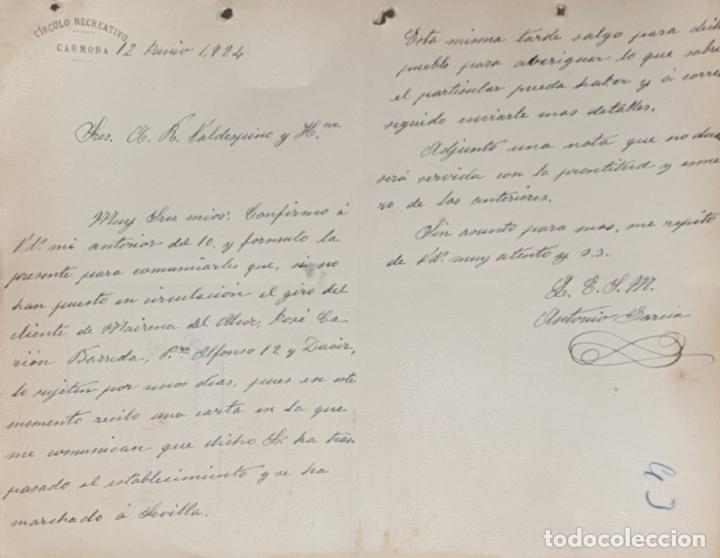 CÍRCULO RECREATIVO
CARMONA
12 Junio 1,924
Sres. A. R. Valdespino y H.no
Muy Sres mios: Confirmo á
Vds. mi anterior del 10. y formulo la
presente para comunicarles que, si no
han puesto en circulación el giro del
cliente de Mairena del Alcor, José Ca-
rión Barreda, Alfonso 12 y Daoiz,
lo sujeten por unos dias, pues en este
momento recibo una carta en la que
me comunican que dicho Sr. ha tras-
pasado el establecimiento y se ha
marchado á Sevilla.
Esta misma tarde salgo para dicho
pueblo para averiguar lo que sobre
el particular pueda haber y á corre
seguido enviarle mas detalles.
Adjunto una nota que no dudo
será servida con la prontitud y esme-
ro de las anteriores.
Sin asunto para mas, me repito
de Vds. muy atento y s.s.
Q. E. S. M.
Antonio Garcia
todocoleccion
todocoleccion.net